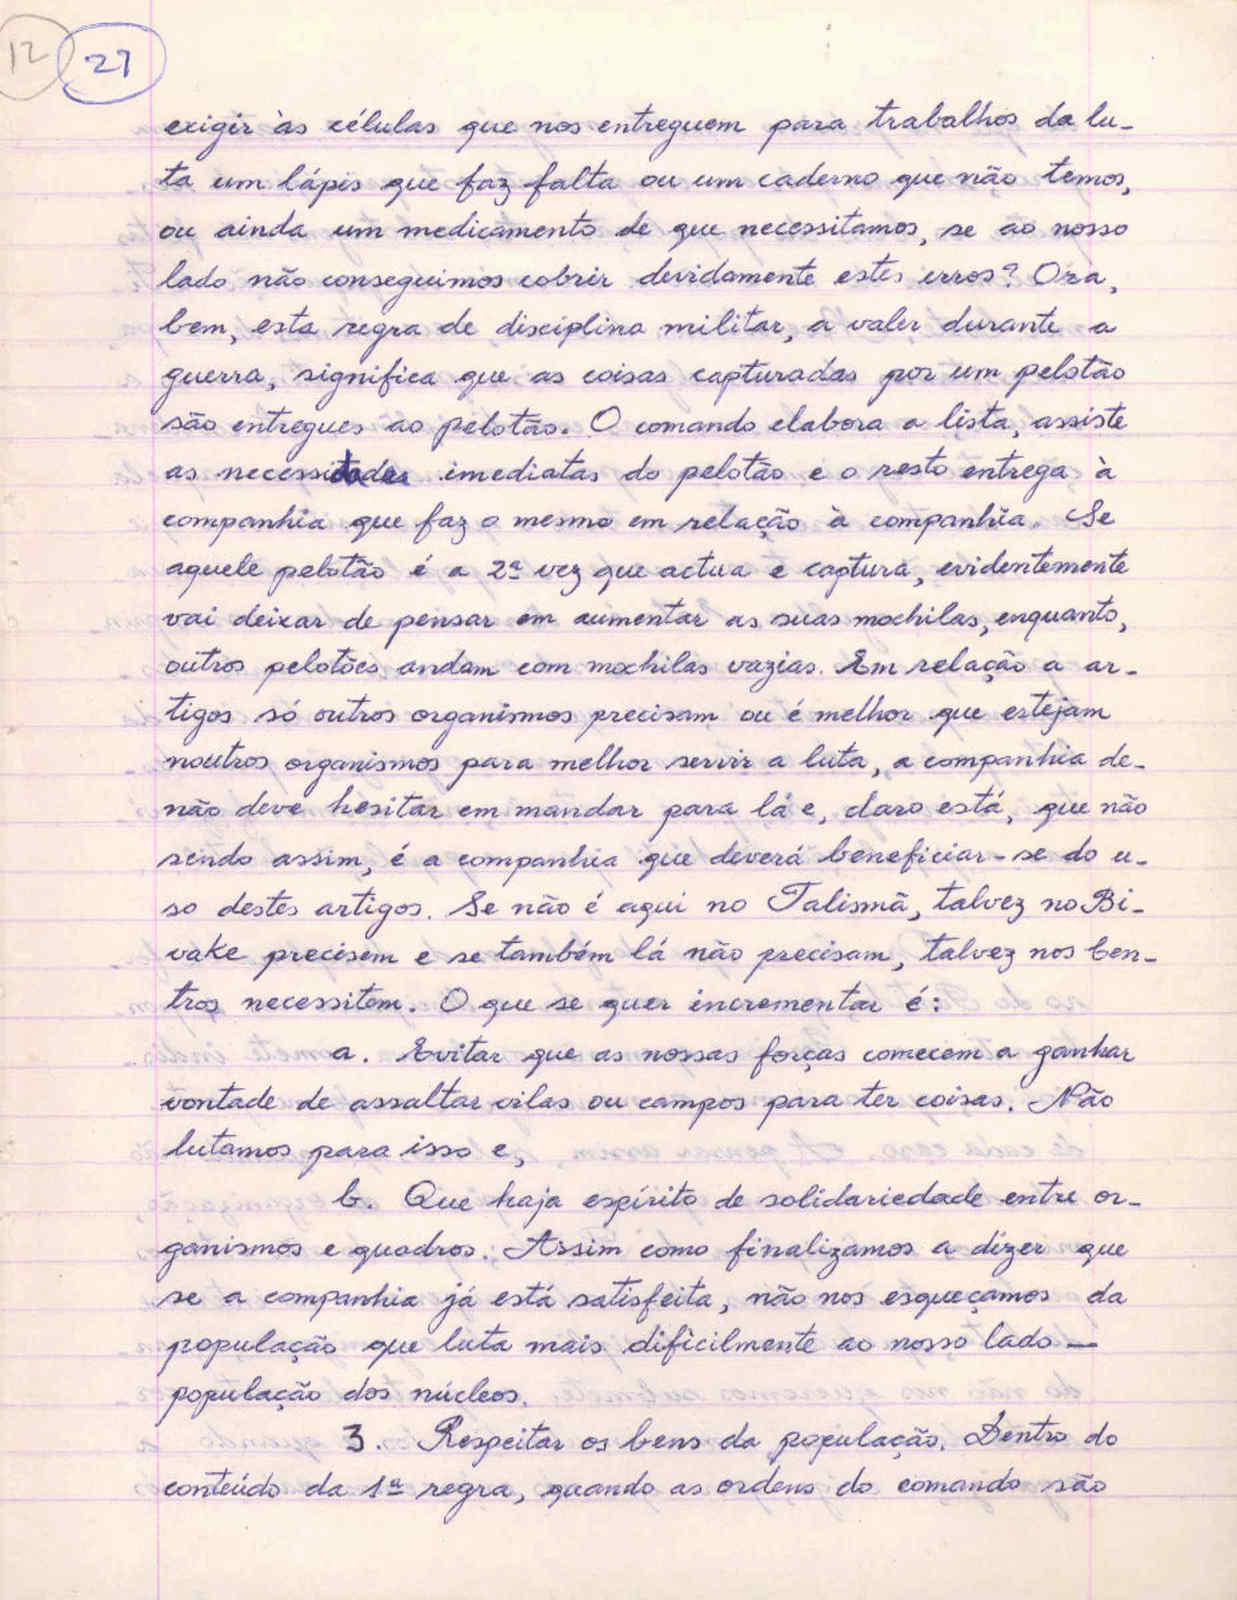 12 27
exigir às células que nos entreguem para trabalhos da lu-
ta um lápis que faz falta ou um caderno que não temos,
ou ainda um medicamento de que necessitamos, se ao nosso
lado não conseguimos cobrir devidamente estes erros? Ora,
bem, esta regra de disciplina militar, a valer durante a
guerra, significa que as coisas capturadas por um pelotão
são entregues ao pelotão. O comando elabora a lista, assiste
as necessidades imediatas do pelotão e o resto entrega à
companhia que faz o mesmo em relação à companhia. Se
aquele pelotão é a 2ª vez que actua e captura, evidentemente
vai deixar de pensar em aumentar as suas mochilas, enquanto,
outros pelotões andam com mochilas vazias. Em relação a ar-
tigos só outros organismos precisam ou é melhor que estejam
noutros organismos para melhor servir a luta, a companhia de-
não deve hesitar em mandar para lá e, claro está, que não
sendo assim, é a companhia que deverá beneficiar-se do u-
so destes artigos. Se não é aqui no Talismã, talvez no Bi-
vake precisem e se também lá não precisam, talvez nos Cen-
tros necessitem. O que se quer incrementar é:
a. Evitar que as nossas forças comecem a ganhar
vontade de assaltar vilas ou campos para ter coisas. Não
lutamos para isso e,
b. Que haja espírito de solidariedade entre or-
ganismos e quadros. Assim como finalizamos a dizer que
se a companhia já está satisfeita, não nos esqueçamos da
população que luta mais dificilmente ao nosso lado —
população dos núcleos.
3. Respeitar os bens da população. Dentro do
conteúdo da 1ª regra, quando as ordens do comando são